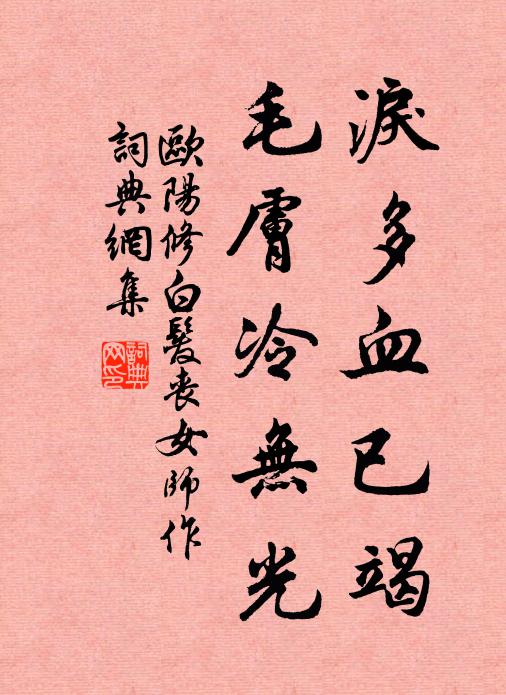 淚多血已竭
毛膚冷無光
歐陽修白髮喪女師作
詞典網集
詞典网印